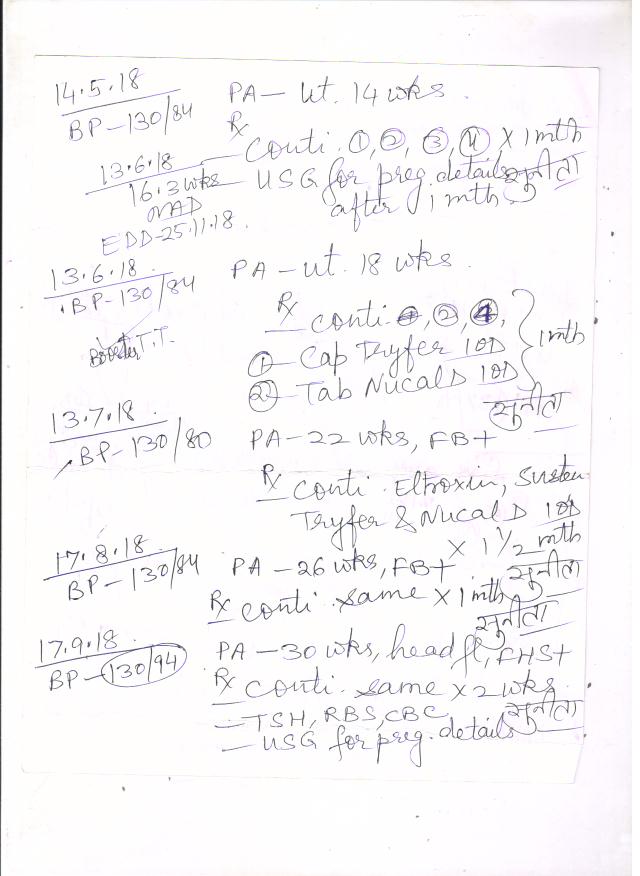 14.5.18 PA - Ut. 14 wks.
BP - 130/84 Rx
Conti. ①, ②, ③, ④ X 1 mth
13.6.18 - USG for preg. details सुनीता
16.3 wks after 1 mth
NAD
EDD - 25.11.18.
13.6.18. PA - Ut. 18 wks.
BP - 130/84
Rx Conti. ②, ④,
Booster T.T. ① Cap Tryfer 1 OD 1 mth
② Tab Nucal D 1 OD
सुनीता
13.7.18.
BP - 130/80 PA - 22 wks, FB+
Rx Conti. Eltroxin, Susten
Tryfer & Nucal D 1 OD
X 1 1/2 mth
17.8.18. सुनीता
BP - 130/84 PA - 26 wks, FB+
Rx Conti. same X 1 mth
सुनीता
17.9.18. PA - 30 wks, head fl, FHS+
BP - 130/94 Rx Conti. same X 2 wks
- TSH, RBS, CBC सुनीता
- USG for preg. details